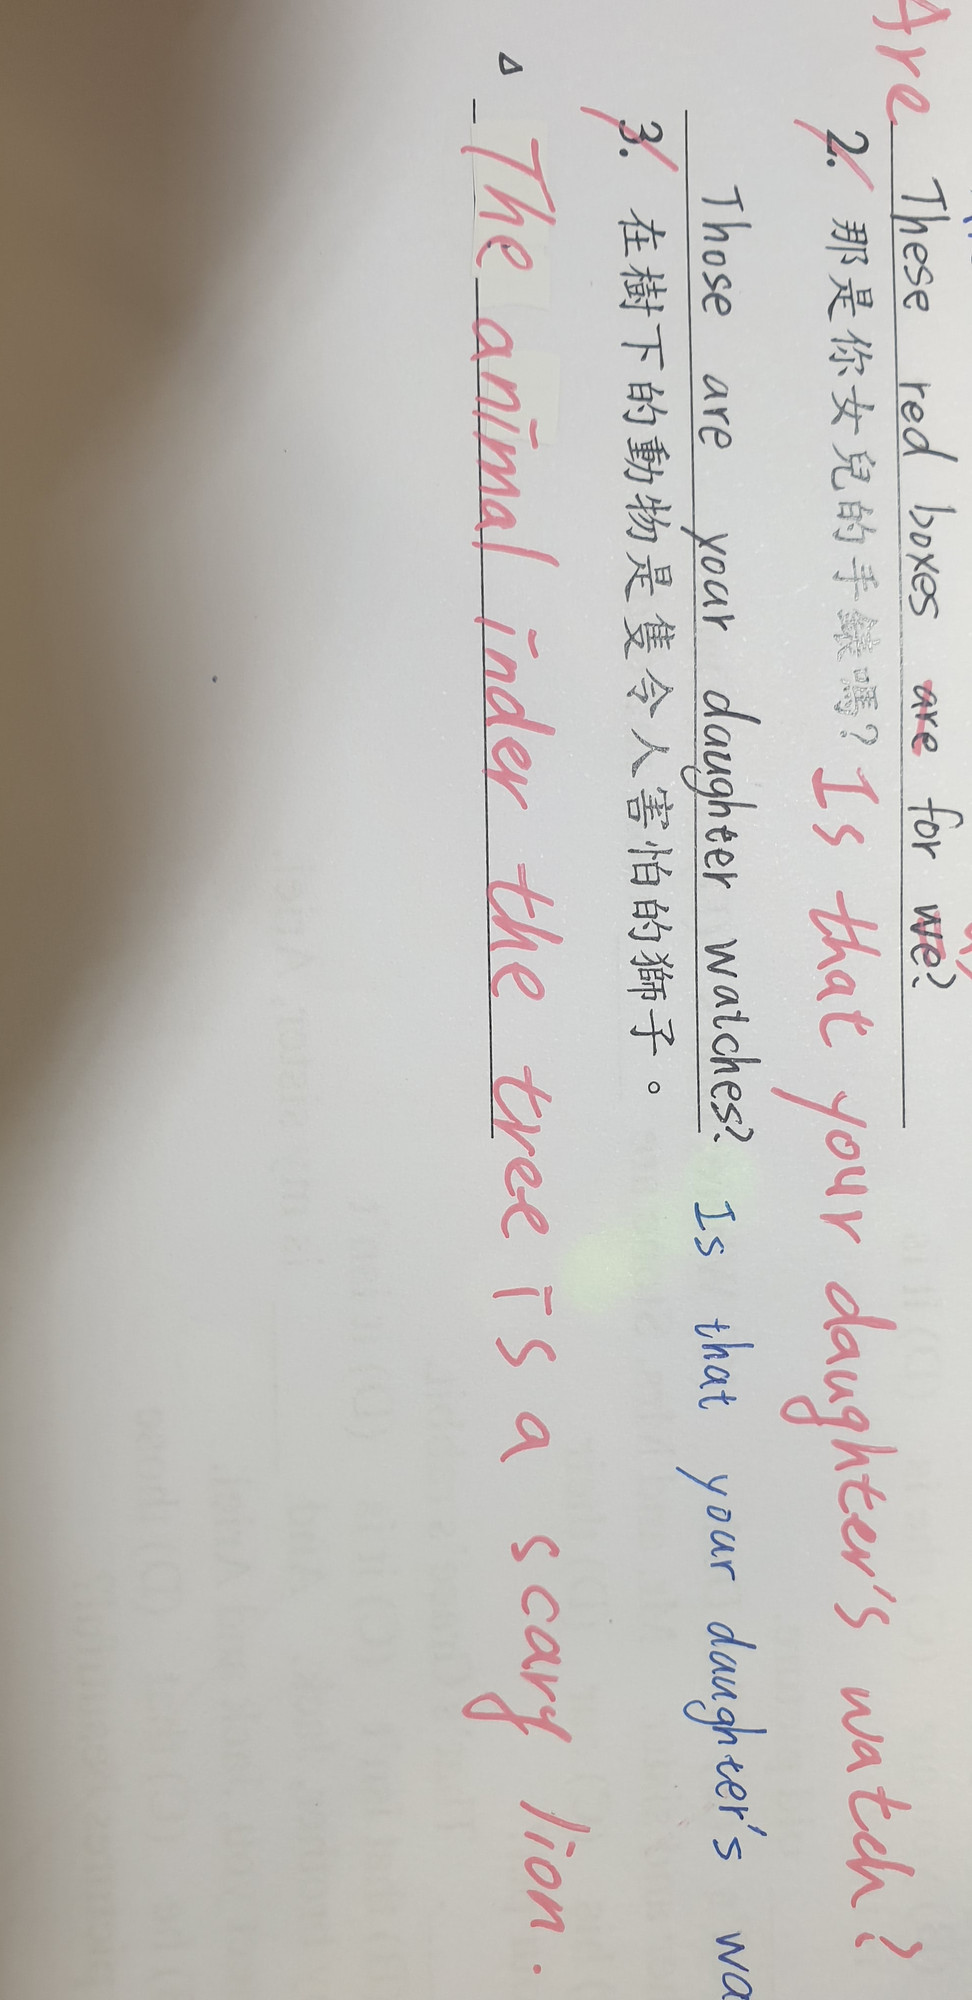 Are These red boxes are for we?
2. 那是你女兒的手錶嗎? Is that your daughter's watch?
Those are your daughter watches? Is that your daughter's wa
3. 在樹下的動物是隻令人害怕的獅子。
The animal inder the tree is a scary lion.